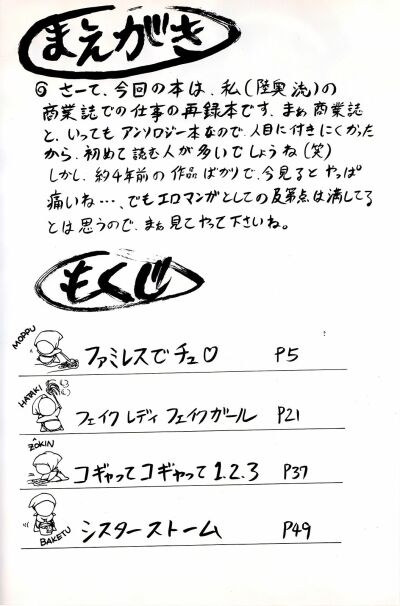 まえがき
◎ さーて、今回の本は、私(陸奥 流)の
商業誌での仕事の再録本です。まぁ商業誌
と、いってもアンソロジー本なので、人目に付きにくかった
から、初めて読む人が多いでしょうね(笑)
しかし、約4年前の作品ばかりで、今見るとやっぱ
痛いね…、でもエロマンガとしての及第点は満してる
とは思うので、まぁ見てやって下さいね。
もくじ
MOPPU
ファミレスでチュ♡ P5
HATAKI
フェイク レディ フェイクガール P21
ZŌKIN
コギャってコギャって1.2.3 P37
BAKETU
シスターストーム P49